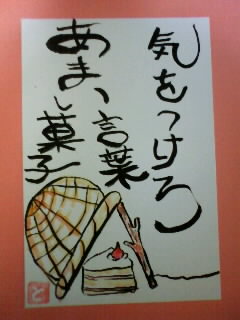 気をつけろ
あまい言葉
い菓子
と